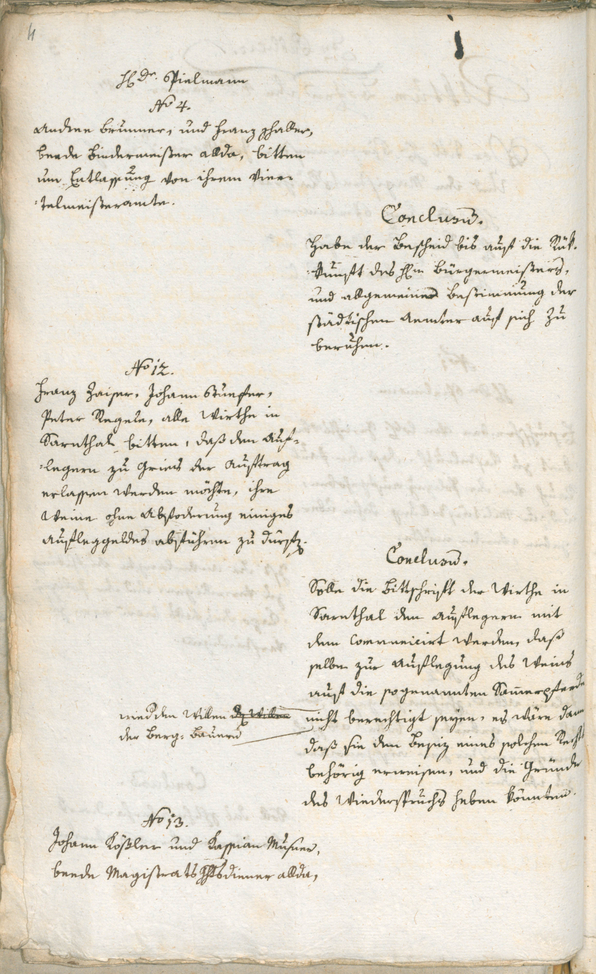 4
H Dr. Spielmann
No 4.
Andree Brunner, und Franz Thaler,
beede Bindermeister allda, bitten
um Entlassung von ihrem Vier-
telmeisteramte.
Conclusum.
Habe der Bescheid bis auf die Rük-
kunft des Hrn Bürgermeisters,
und allgemeine Bestimmung der
städtischen Aemter auf sich zu
beruhen.
No 12.
Franz Zaiser, Johann Stuefer,
Peter Regele, alle Wirthe in
Sarnthal bitten, daß dem Auf-
legern zu Gries der Auftrag
erlassen werden möchte, ihre
Weine ohne Abfoderung einiges
Aufleggeldes abführen zu dürfen.
Conclusum.
Solle die Bittschrift der Wirthe in
Sarnthal den Auflegern mit
dem Communicirt werden, daß
selbe zur Auflegung des Weins
auf die sogenannten Sämerpferde
nicht berechtigt seyen, es wäre dann
daß sie den Besiz eines solchen Rechts
behörig erweisen, und die Gründe
des Wiederspruchs heben könnten.
der Berg-Bauern
No 13.
Johann Kößler und Kassian
beede Magistratsgerichtsdiener allda,